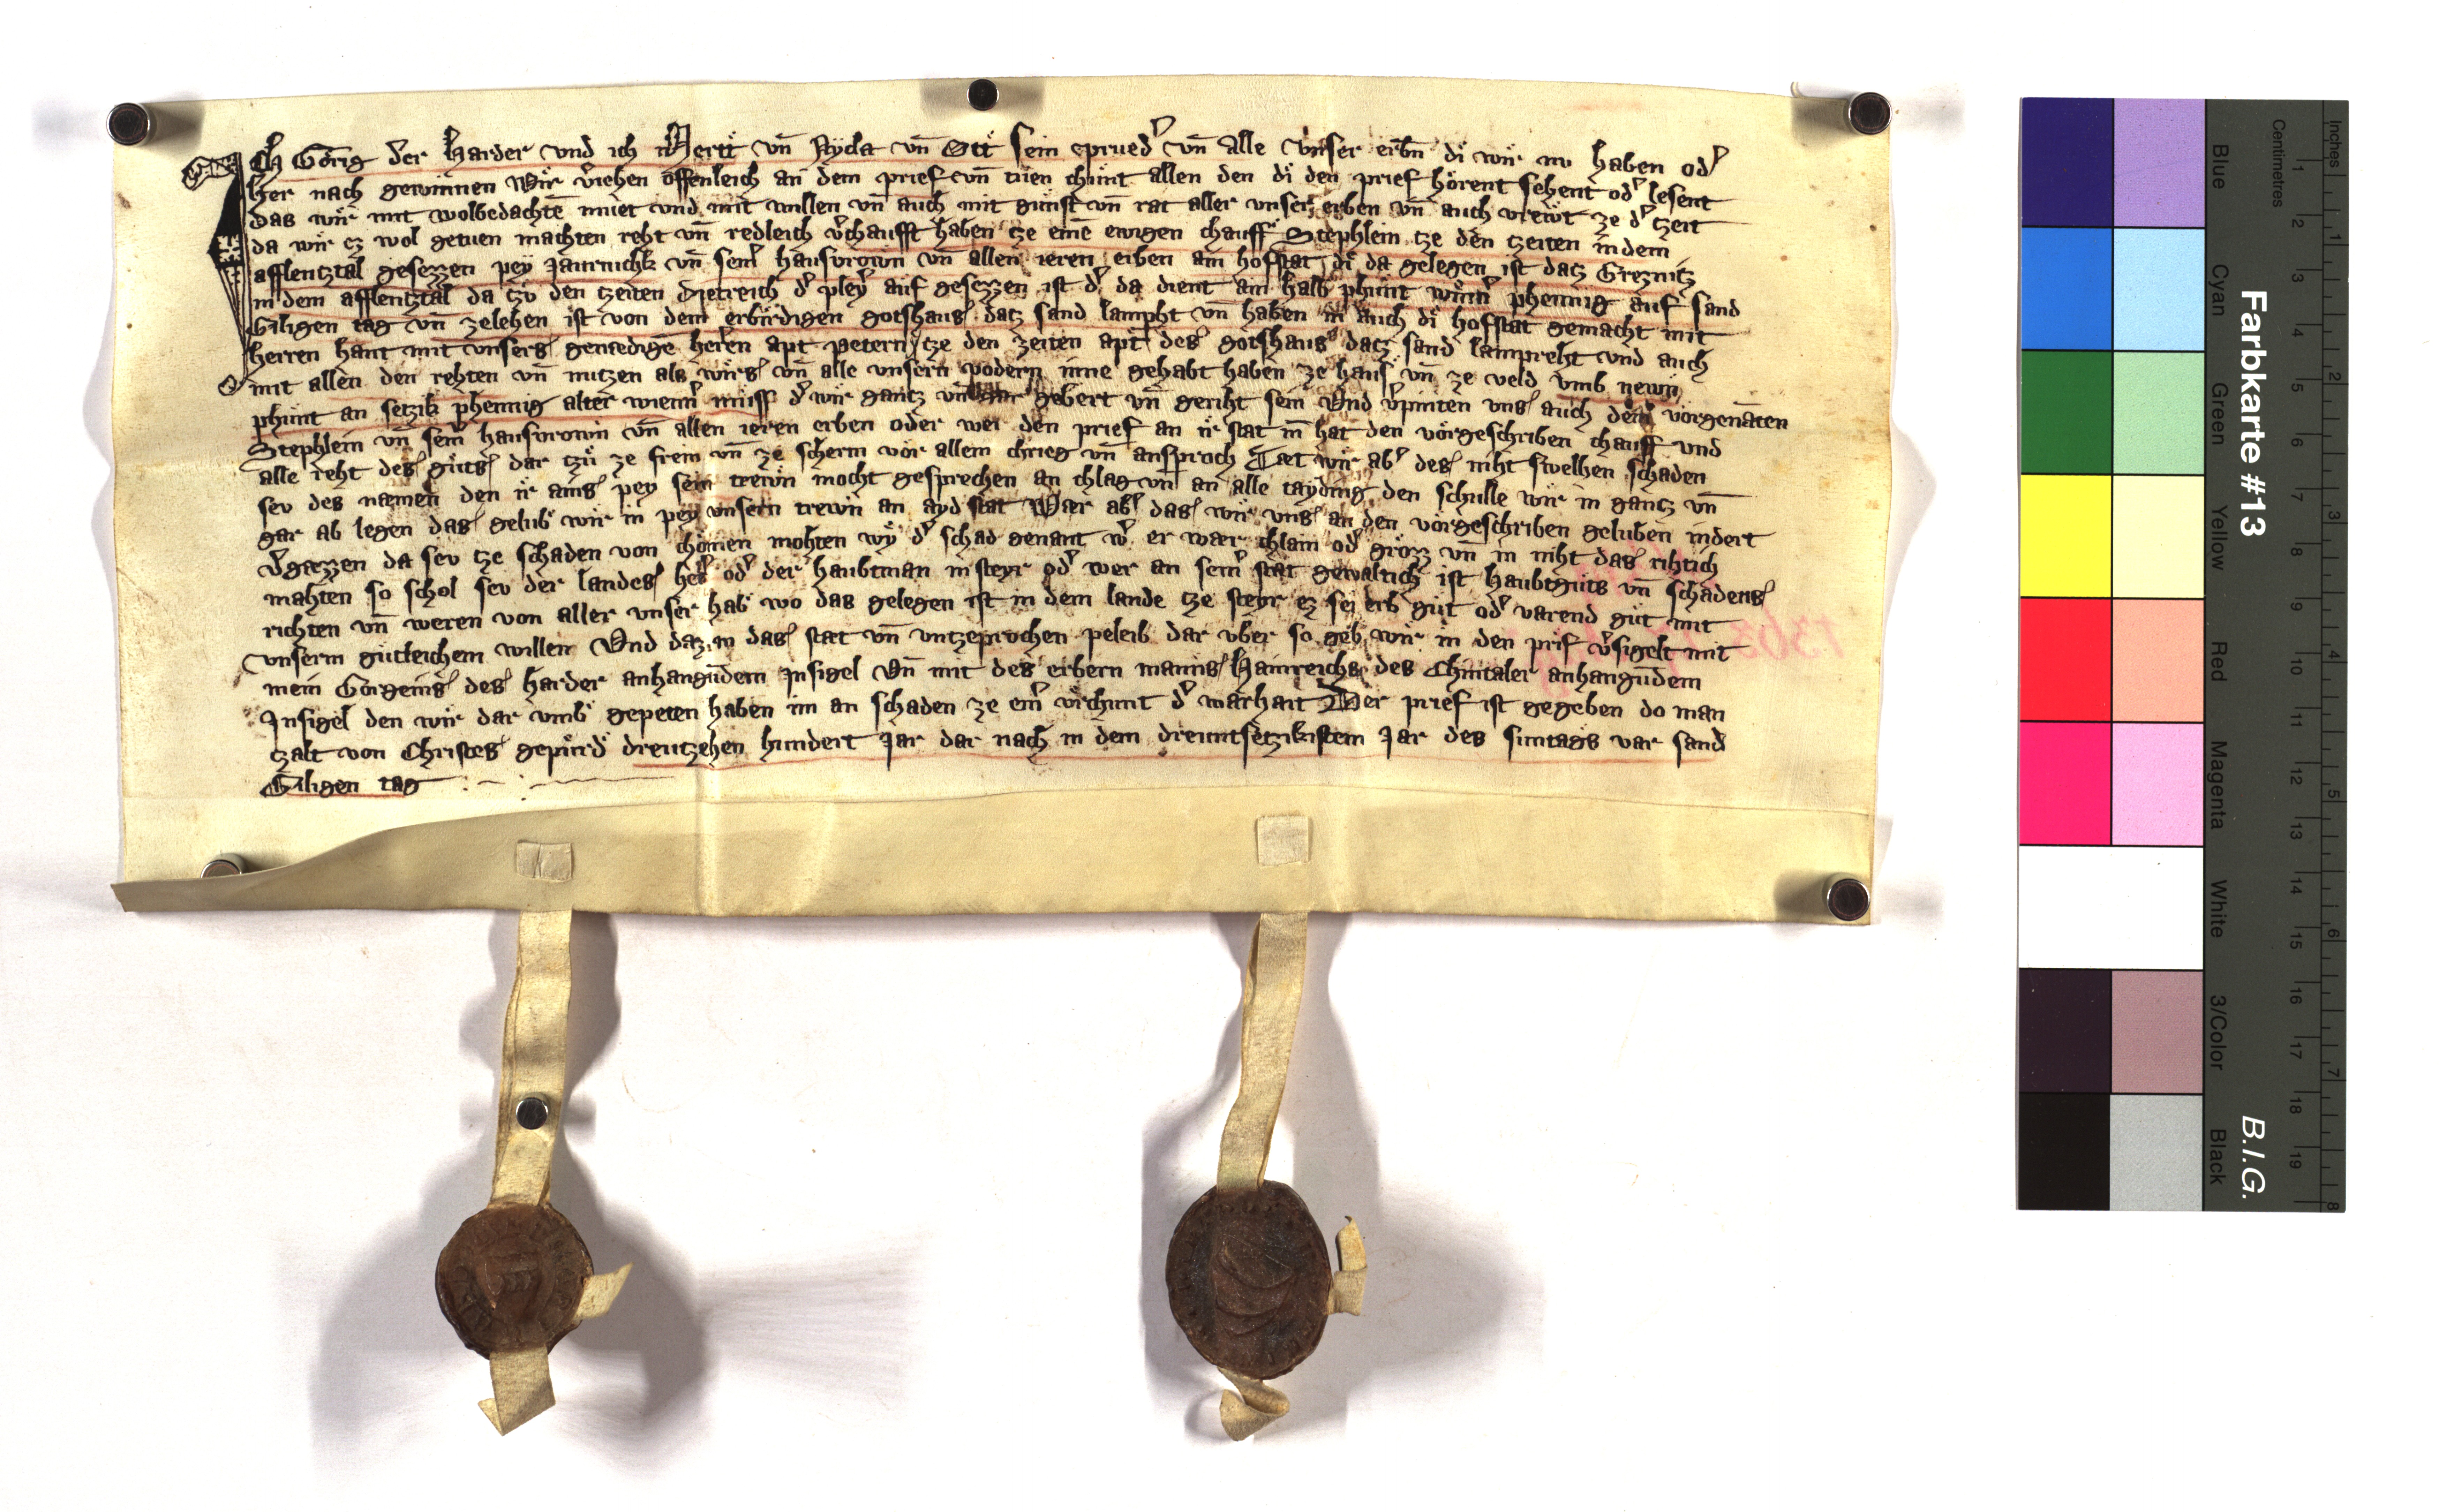 Ich Görig der Harder vnd ich Hertl vn̄ Nycla vn̄ Ott sein prued' vn̄ alle vnser erbn̄ di wir nv haben od'
her nach gewinnen Wir v'iehen offenleich an dem prief vn̄ tuen chunt allen den di den prief hörent sehent od' lesent
das wir mit wolbedachtē muet vnd mit willen vn̄ auch mit gunst vn̄ rat aller vnser erben vn̄ auch vrewt ze d' tzeit
da wir ez wol getuen machten reht vn̄ redleich v'chaufft haben tze einē ewigen chauff Stephlein tze den tzeiten in dem
afflentztal gesezzen pey Jaurnichk vn̄ sein' hausvrowin vn̄ allen ieren erben ain hofstat di da gelegen ist datz Greznitz
in dem afflentztal da tzv den tzeiten Dietreich d' pley' auf gesezzen ist d' da dient ain halb phunt winn' phennig auf sand
Giligen tag vn̄ zelehen ist von dem erbirdigen gotshaus datz sand lampht vn̄ haben in auch di hofstat gemacht mit
herren hant mit vnsers genedigē heren apt petern tze den zeiten apt des gotshaus datz sand lampreht vnd auch
mit allen den rehten vn̄ nutzen als wirs vn̄ alle vnsern vodern inne gehabt haben ze haus vn̄ ze veld vmb newn
phunt an setzik phennig alter wienn' müss d' wir gantz vn̄ gar gebert vn̄ geriht sein Vnd v'pinten vns auch dem vorgenāten
Stephlein vn̄ sein' hausvrowin vn̄ allen ieren erben oder wer den prief an ir stat in̄ hat den vorgeschriben chauff vnd
alle reht des guts dar tzu ze frein vn̄ ze scherm vor allem chrieg vn̄ ansproch Tæt wir ab' des niht swelhen schaden
sev des næmen den ir ains pey sein trewn mocht gesprechen an chlag vn̄ an alle tayding den schulle wir in gantz vn̄
gar ab legen das gelub wir in pey vnsern trewn an ayd stat Wær ab' das wir vns an den vorgeschriben geluben indert
v'gæzzen da sev tze schaden von chomen mohten wy d' schad genant w' er wær chlain od' grozz vn̄ in niht das rihtich
mahten so schol sev der landes her' od' der haubtman in steyr od' wer an sein' stat gewaltich ist haubtguts vn̄ schadens
richten vn̄ weren von aller vnser hab wo das gelegen ist in dem lande tze steyr ez sei erb gut od' varend gut mit
vnserm gutleichem willen Vnd daz in das stat vn̄ vntzeprochen peleib dar vber so geb wir in den prif v'sigelt mit
mein Görgeins des harder anhangūdem Insigel vn̄ mit des erbern manns Hainreichs des Chintaler anhangūdem
Insigel den wir dar vmb gepeten haben im an schaden ze ein' vrchunt d' warhait Der prief ist gegeben do man
tzalt von Christes gepurd dreutzehen hundert Jar dar nach in dem dreuntsetzikistem Jar des suntags var sand
Giligen tag
1363
Farbkarte #13
B.I.G.
Centimetres
Inches
Blue
Cyan
Green
Yellow
Red
Magenta
White
3/Color
Black
1 2 3 4 5 6 7 8 9 10 11 12 13 14 15 16 17 18 19
1 2 3 4 5 6 7 8